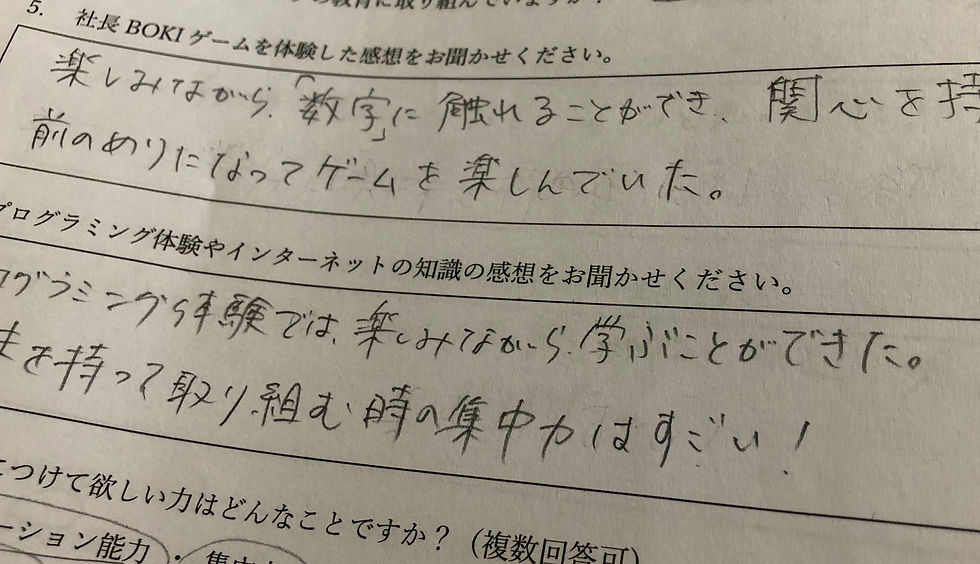 の教育に取り組んでいますか？
5. 社長 BOKI ゲームを体験した感想をお聞かせください。
楽しみながら、「数字」に触れることができ、関心を持
前のめりになってゲームを楽しんでいた。
プログラミング体験やインターネットの知識の感想をお聞かせください。
ログラミング体験では、楽しみながら学ぶことができた。
を持って取り組む時の集中力はすごい！
につけて欲しい力はどんなことですか？（複数回答可）
ーション能力・集中